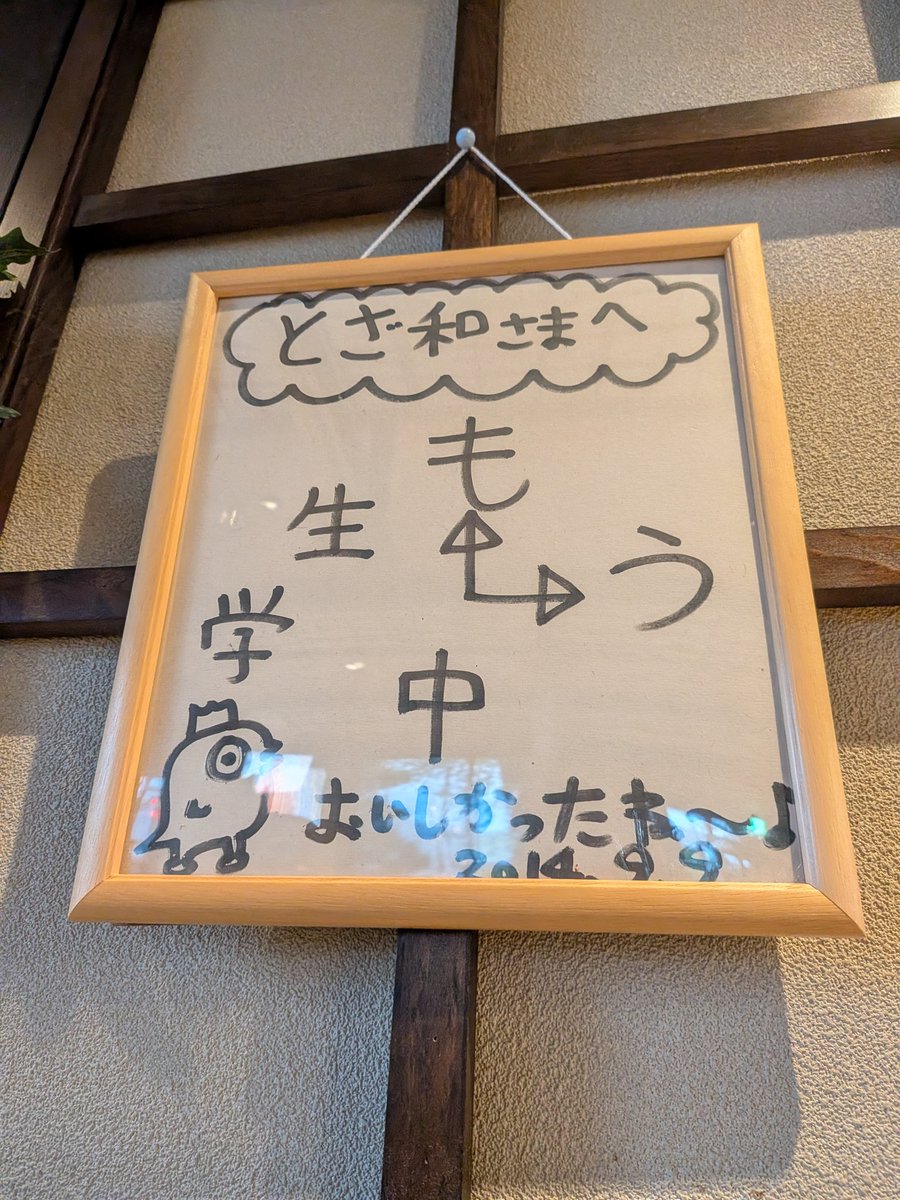 とざ和さまへ
もう
中
学
生
おいしかったね〜よ
2014.9.9